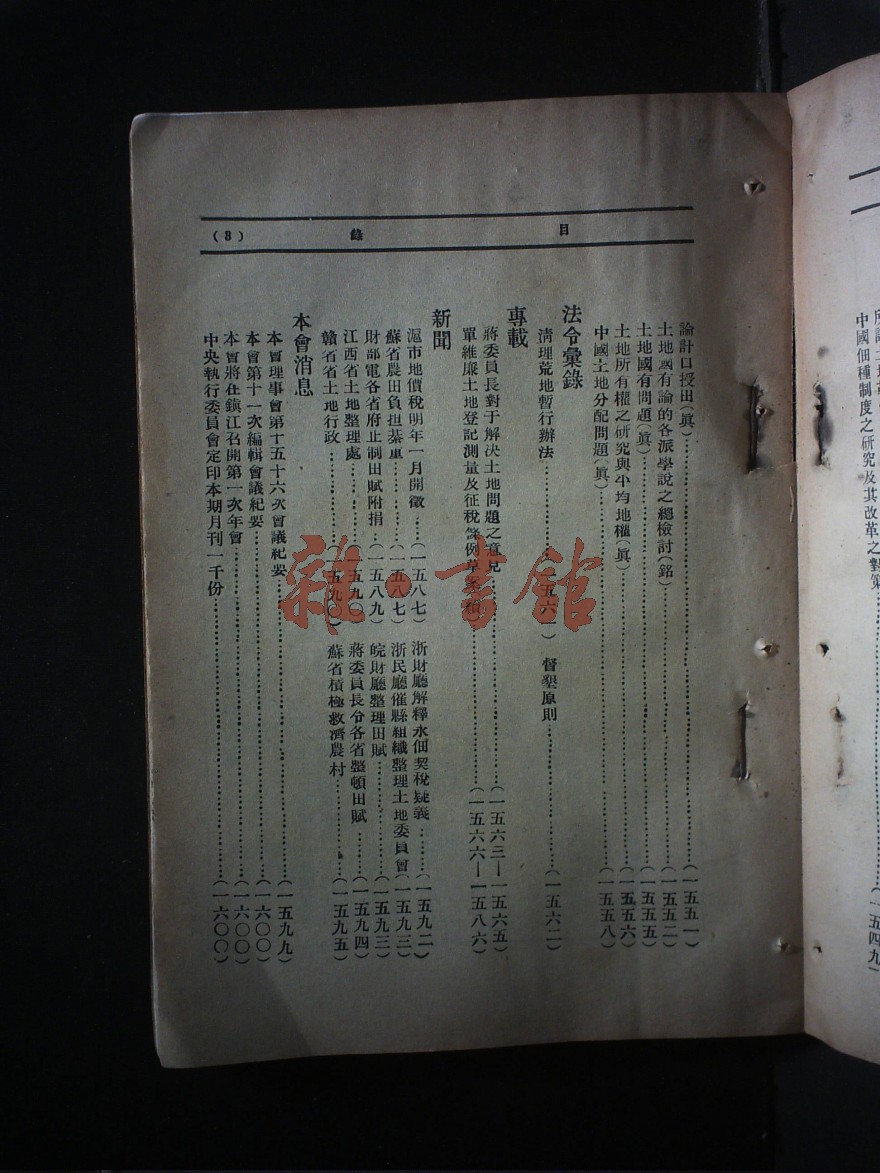 目 錄 (8)
論計口授田(眞)……(一五五一)
土地國有論的各派學說之總檢討(銘)……(一五五二)
土地國有問題(眞)……(一五五五)
土地所有權之研究與平均地權(眞)……(一五五六)
中國土地分配問題(眞)……(一五五八)
法令彙錄
清理荒地暫行辦法……(一五六一)
督墾原則……(一五六二)
專載
蔣委員長對于解決土地問題之意見……(一五六三—一五六五)
單維廉土地登記測量及征稅條例草案……(一五六六—一五八六)
新聞
滬市地價稅明年一月開徵……(一五八七)
浙財廳解釋永佃契稅疑義……(一五九二)
蘇省農田負担綦重……(一五八七)
浙民廳催縣組織整理土地委員會(一五九三)
財部電各省府止制田賦附捐……(一五八九)
皖財廳整理田賦……(一五九三)
江西省土地整理處……(一五九〇)
蔣委員長分各省整頓田賦……(一五九四)
贛省省土地行政……(一五九〇)
蘇省積極救濟農村……(一五九五)
本會消息
本會理事會第十五十六次會議紀要……(一五九九)
本會第十一次編輯會議紀要……(一六〇〇)
本會將在鎮江召開第一次年會……(一六〇〇)
中央執行委員會定印本期月刊一千份……(一六〇〇)
中國佃種制度之研究及其改革之對策
(一五四九)
雜·書館